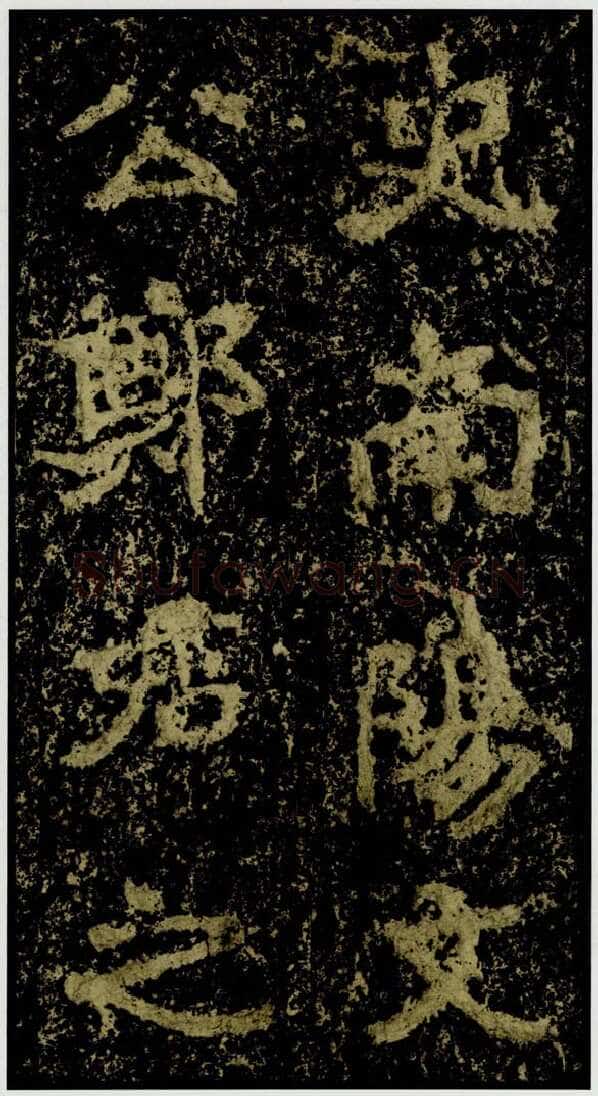 史南陽文
公鄭君之
Shufawang.CN